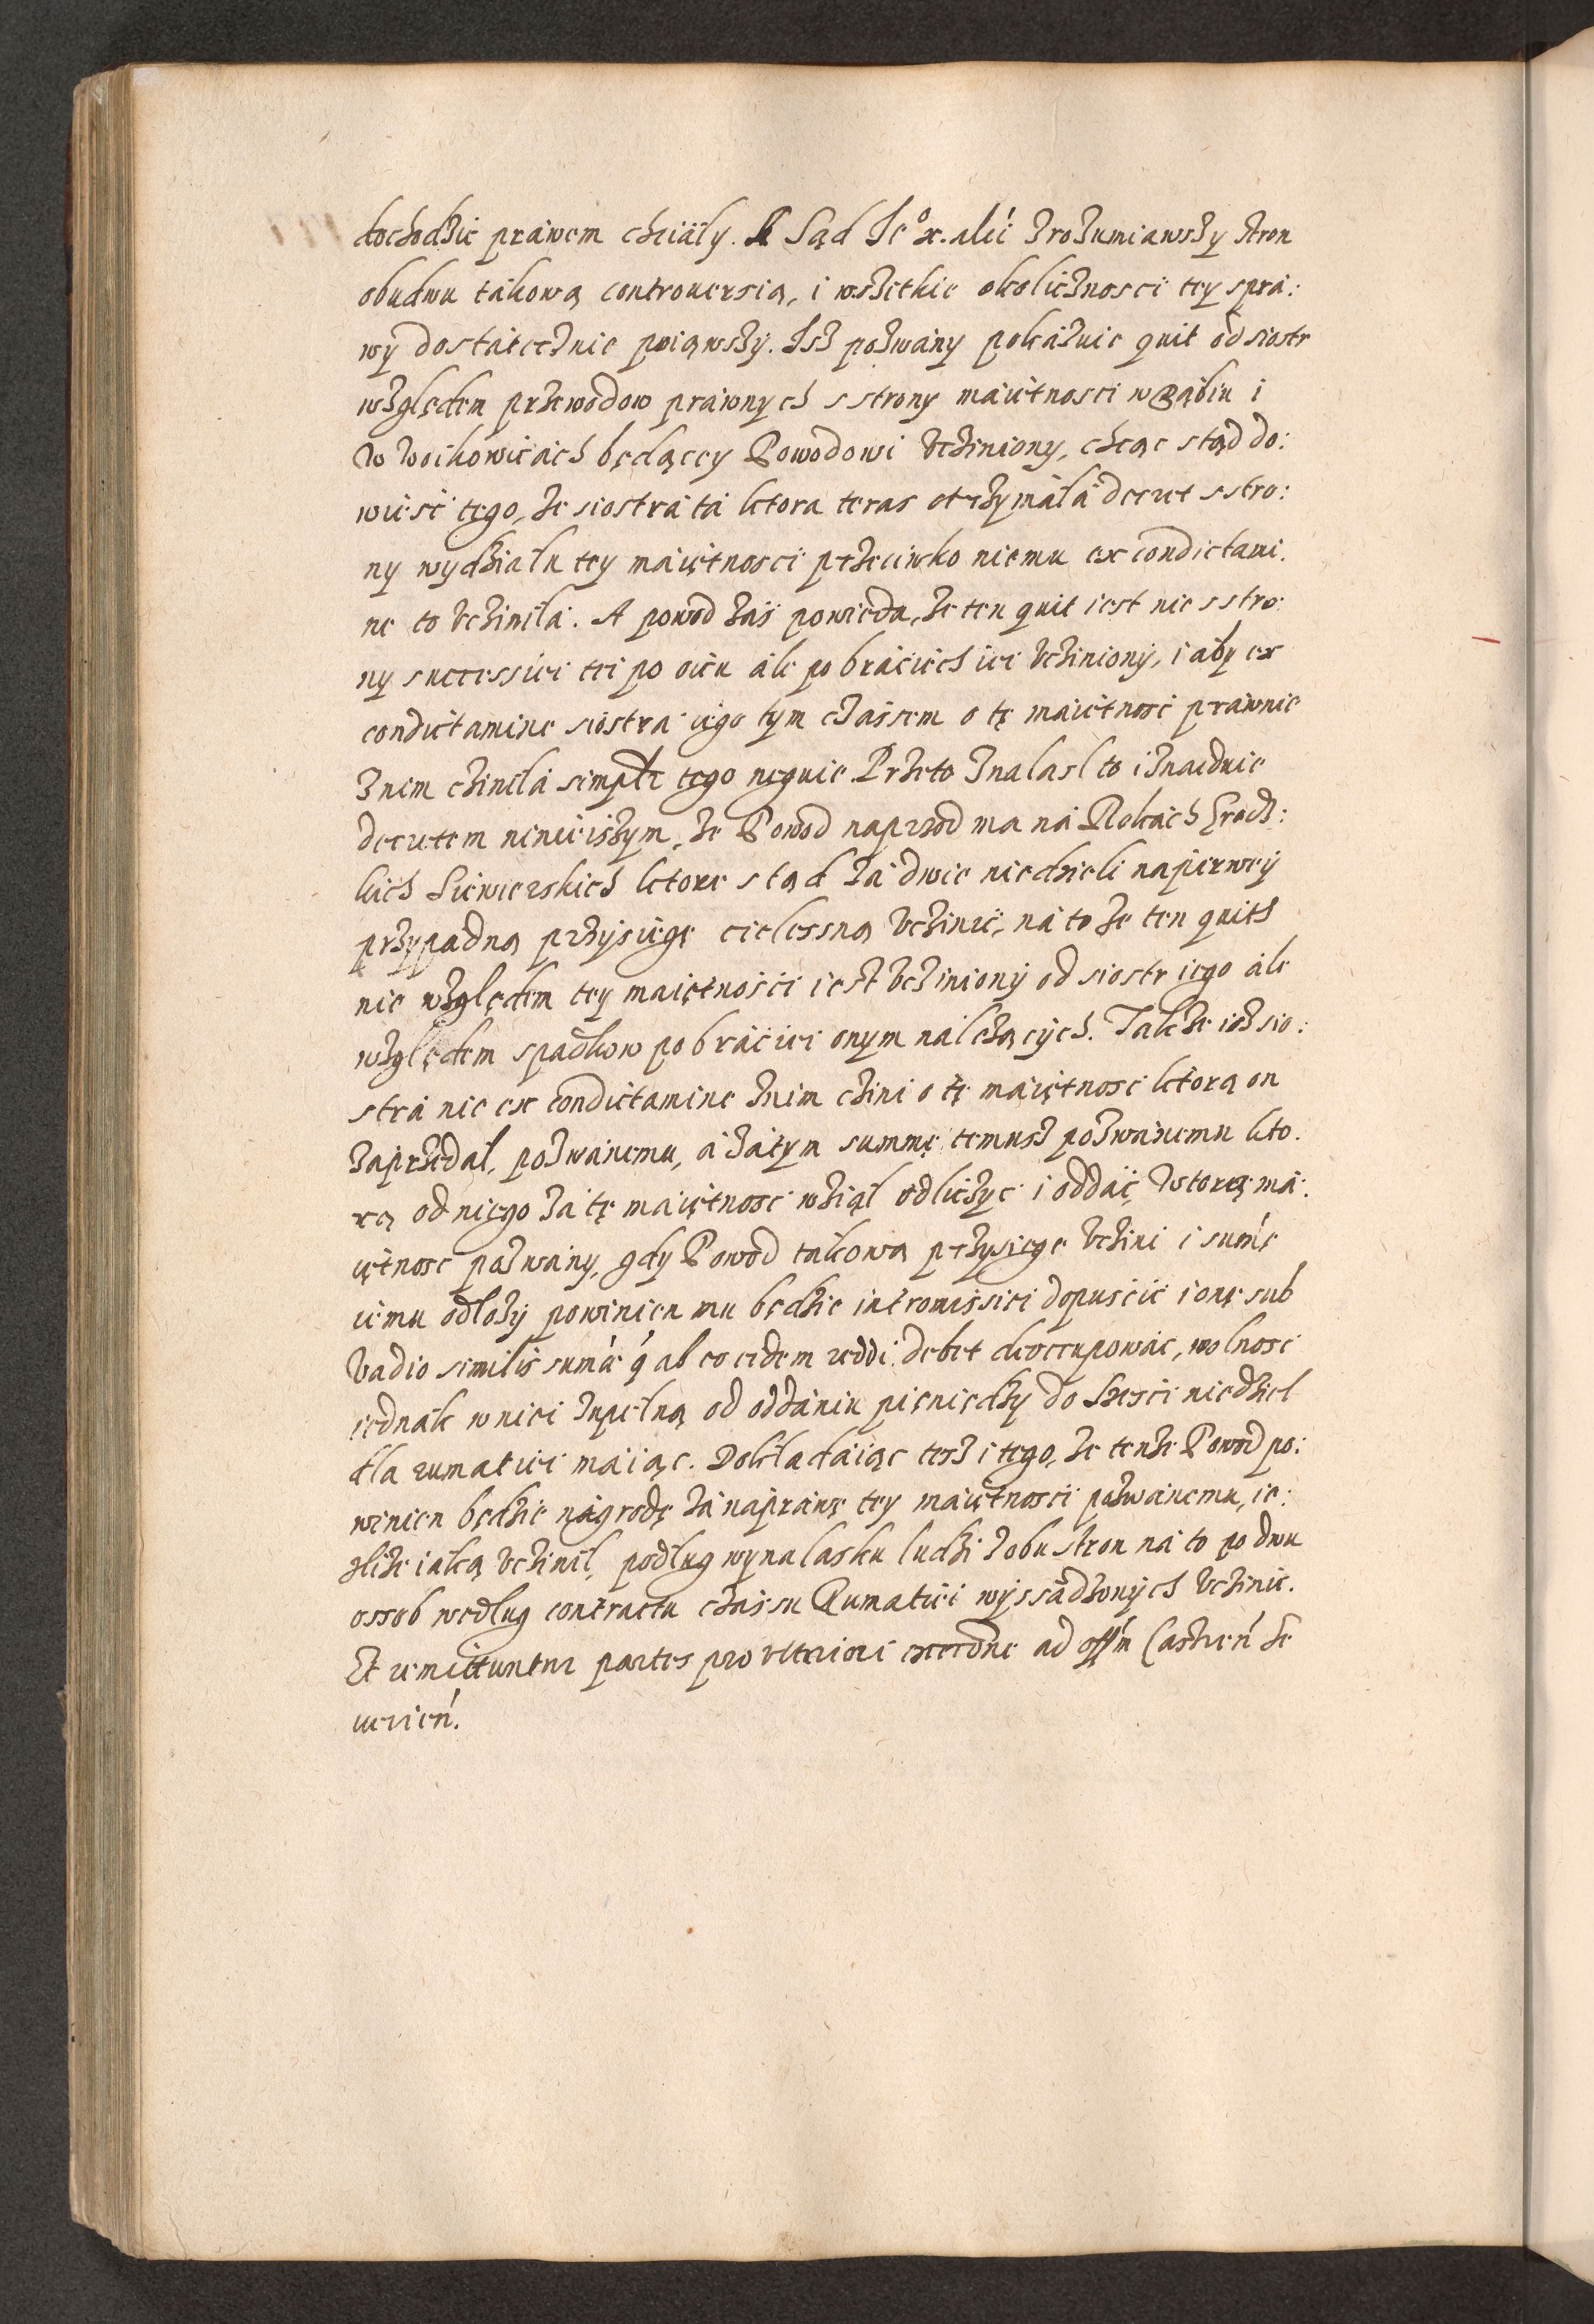 dochodzic práwem chciáły. A Sąd Je° x. alći zrozumiawszy stron
obudwu tákową controuersią, i wszetkie okolicznosci tey sprá:
wÿ dostátecznie poiąwszÿ. Isz pozwány pokázuie quit od siostr
względem przewodow práwnych s strony máiętnosci w Bąbiu i
W Woikowicách będącey Powodowi vcziniony, chcąc stąd do:
wiesć tego, że siostrá tá ktora teras otrzymáłá decret s stro:
ny wydziału tey máiętnosci przeciwko niemu ex condictami.
ne to vcziniłá. A powod záś powieda, że ten quit iest nie s stro:
ny successiei tei po oicu ále po bráciech iei vczinionÿ, i aby ex
condictamine siostrá iego tym czássem o tę máiętnosć prawnie
Znem cziniłá simplr tego neguie Przeto Znalasl to i znaiduie
decretem ninieiszym, że Powod naprzod ma ná Rokách Grodz:
kich Siewierskich ktore stąd zá dwie niedzieli napierweÿ
przypadną przÿsięgę cielessną vczinić, ná to że ten quith
nie względem tey maiętnośći iest vczinionÿ od siostr iego ále
względem spadkow po bráciei onym należącÿch. Także iż sio:
strá nie ex condictamine znim czini o tę máiętnosć ktorą on
záprzedał, pozwánemu, á zátym summę temusz pozwánemu kto.
rą od niego zá tę máiętnosc wziął odliczyc i oddáć, Wtorą má:
iętnosc pozwány, gdy Powod tákową przysięgę vczini i suḿę
iemu odłoży powinien mu będzie intromissiei dopuścić i onę sub
vadio similis sumæ q ab eo eidem reddi debet deoccupowác, wolnosc
iednák wniei zupełną od oddániu pieniędzy do szesći niedziel
dla rumatiei máiąc. Dokładáiąc tesz i tego, że tenże Powod po:
winien będzie nágrodę zá naprawę tey máiętnosci pozwánemu, ie:
zliże iáką vczinił, podług wynalasku ludzi zobu stron ná to po dwu
ossob według contractu czássu Rumatiei wÿssádzonÿch vczinic.
Et remittuntur partes pro vlteriori exceone ad offm Castren Se
uerien.